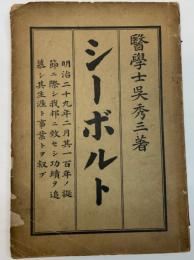 醫學士呉秀三著
シーボルト
明治二十九年二月其一百年ノ誕
節ニ際シ我邦ニ致セシ功績ヲ追
慕シ其生涯ト事業トヲ叙ブ